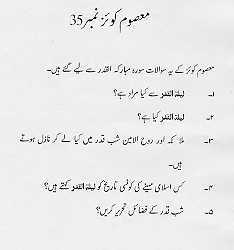 معصوم کوئز نمبر35
معصوم کوئز کے یہ سوالات سورہ مبارکہ القدر سے لیے گئے ہیں۔
۱۔ لیلۃ القدر سے کیا مراد ہے؟
۲۔ لیلۃ القدر کیا ہے؟
۳۔ ملائکہ اور روح الامین شب قدر میں کیا لے کر نازل ہوتے
ہیں۔
۴۔ کس اسلامی مہینے کی کونسی تاریخ کو لیلۃ القدر کہتے ہیں؟
۵۔ شب قدر کے فضائل تحریر کریں؟